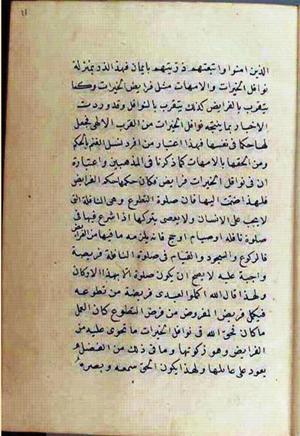 الذين امنوا واتبعتهم ذريتهم بايمان فهذا الذى بمنزلة
نوافل الخيرات والامهات مثل فرايض الخيرات وكما
يتقرب بالفرايض كذلك يتقرب بالنوافل وقد وردت
الاخبار بما ينتجه نوافل الخيرات من القرب الالهى فجعل
لها حكما فى نفسها فهذا اعتبار من افرد نسل الغنم بالحكم
ومن الحقها بالامهات كما ذكرنا فى المذهبين واعتباره
ان فى نوافل الخيرات فرايض فكان حكمها حكم الفرايض
فلهذا اضفت اليها فان صلوة التطوع وهى النافلة التى
لا يجب على الانسان ولا يعصى بتركها اذا شرع فيها فى
صلوة نافلة او صيام او حج فانه يلزمه ما فيها من الفرايض
فالركوع والسجود والقيام فى صلوة النافلة فريضة
واجبة عليه لا يصح ان يكون صلوة الا بهذا الاركان
ولهذا قال الله اكملوا لعبدى فريضته من تطوعه
فيكمل فريض المفروض من فرض التطوع كان العمل
ما كان فحق الله فى نوافل الخيرات ما تحوى عليه من
الفرايض وهو زكوتها وما فى ذلك من الفضل
يعود على عاملها ولهذا يكون الحق سمعه وبصره